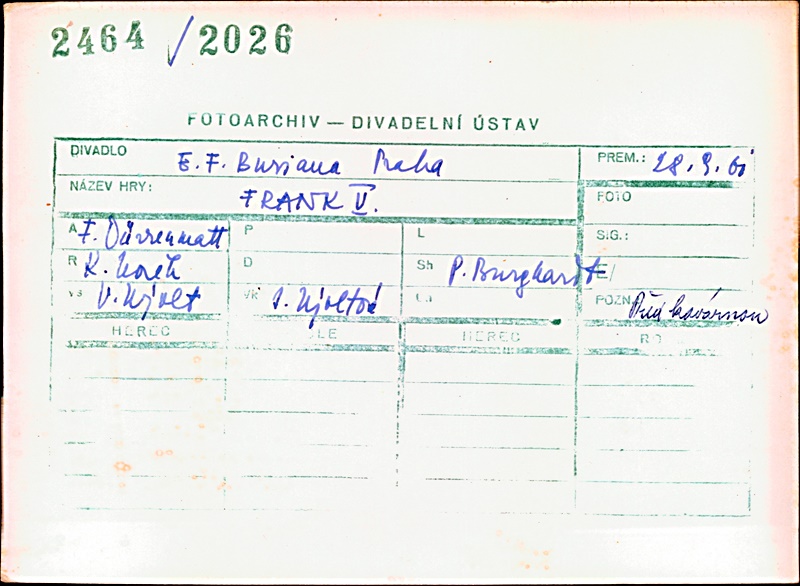 2464 / 2026
FOTOARCHIV — DIVADELNÍ ÚSTAV
DIVADLO E. F. Buriana Praha PREM.: 28. 9. 61
NÁZEV HRY: FRANK V. FOTO
A F. Dürrenmatt P L SIG.:
R K. Novák D Sh P. Burghardt
Vs V. Nývlt Vk J. Nývltová POZN Před kavárnou
HEREC HEREC